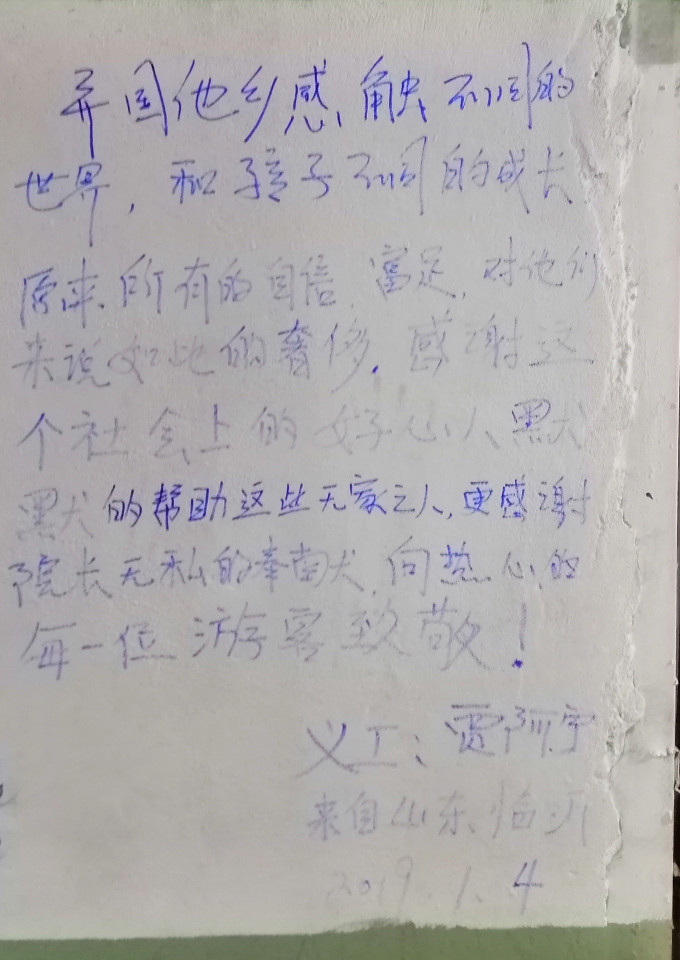 异国他乡感触不同的
世界，和孩子不同的成长
原来所有的自信、富足，对他们
来说如此的奢侈。感谢这
个社会上的好心人默
默的帮助这些无家之人，更感谢
院长无私的奉献，向热心的
每一位游客致敬！
义工：贾阿宁
来自山东临沂
2019.1.4